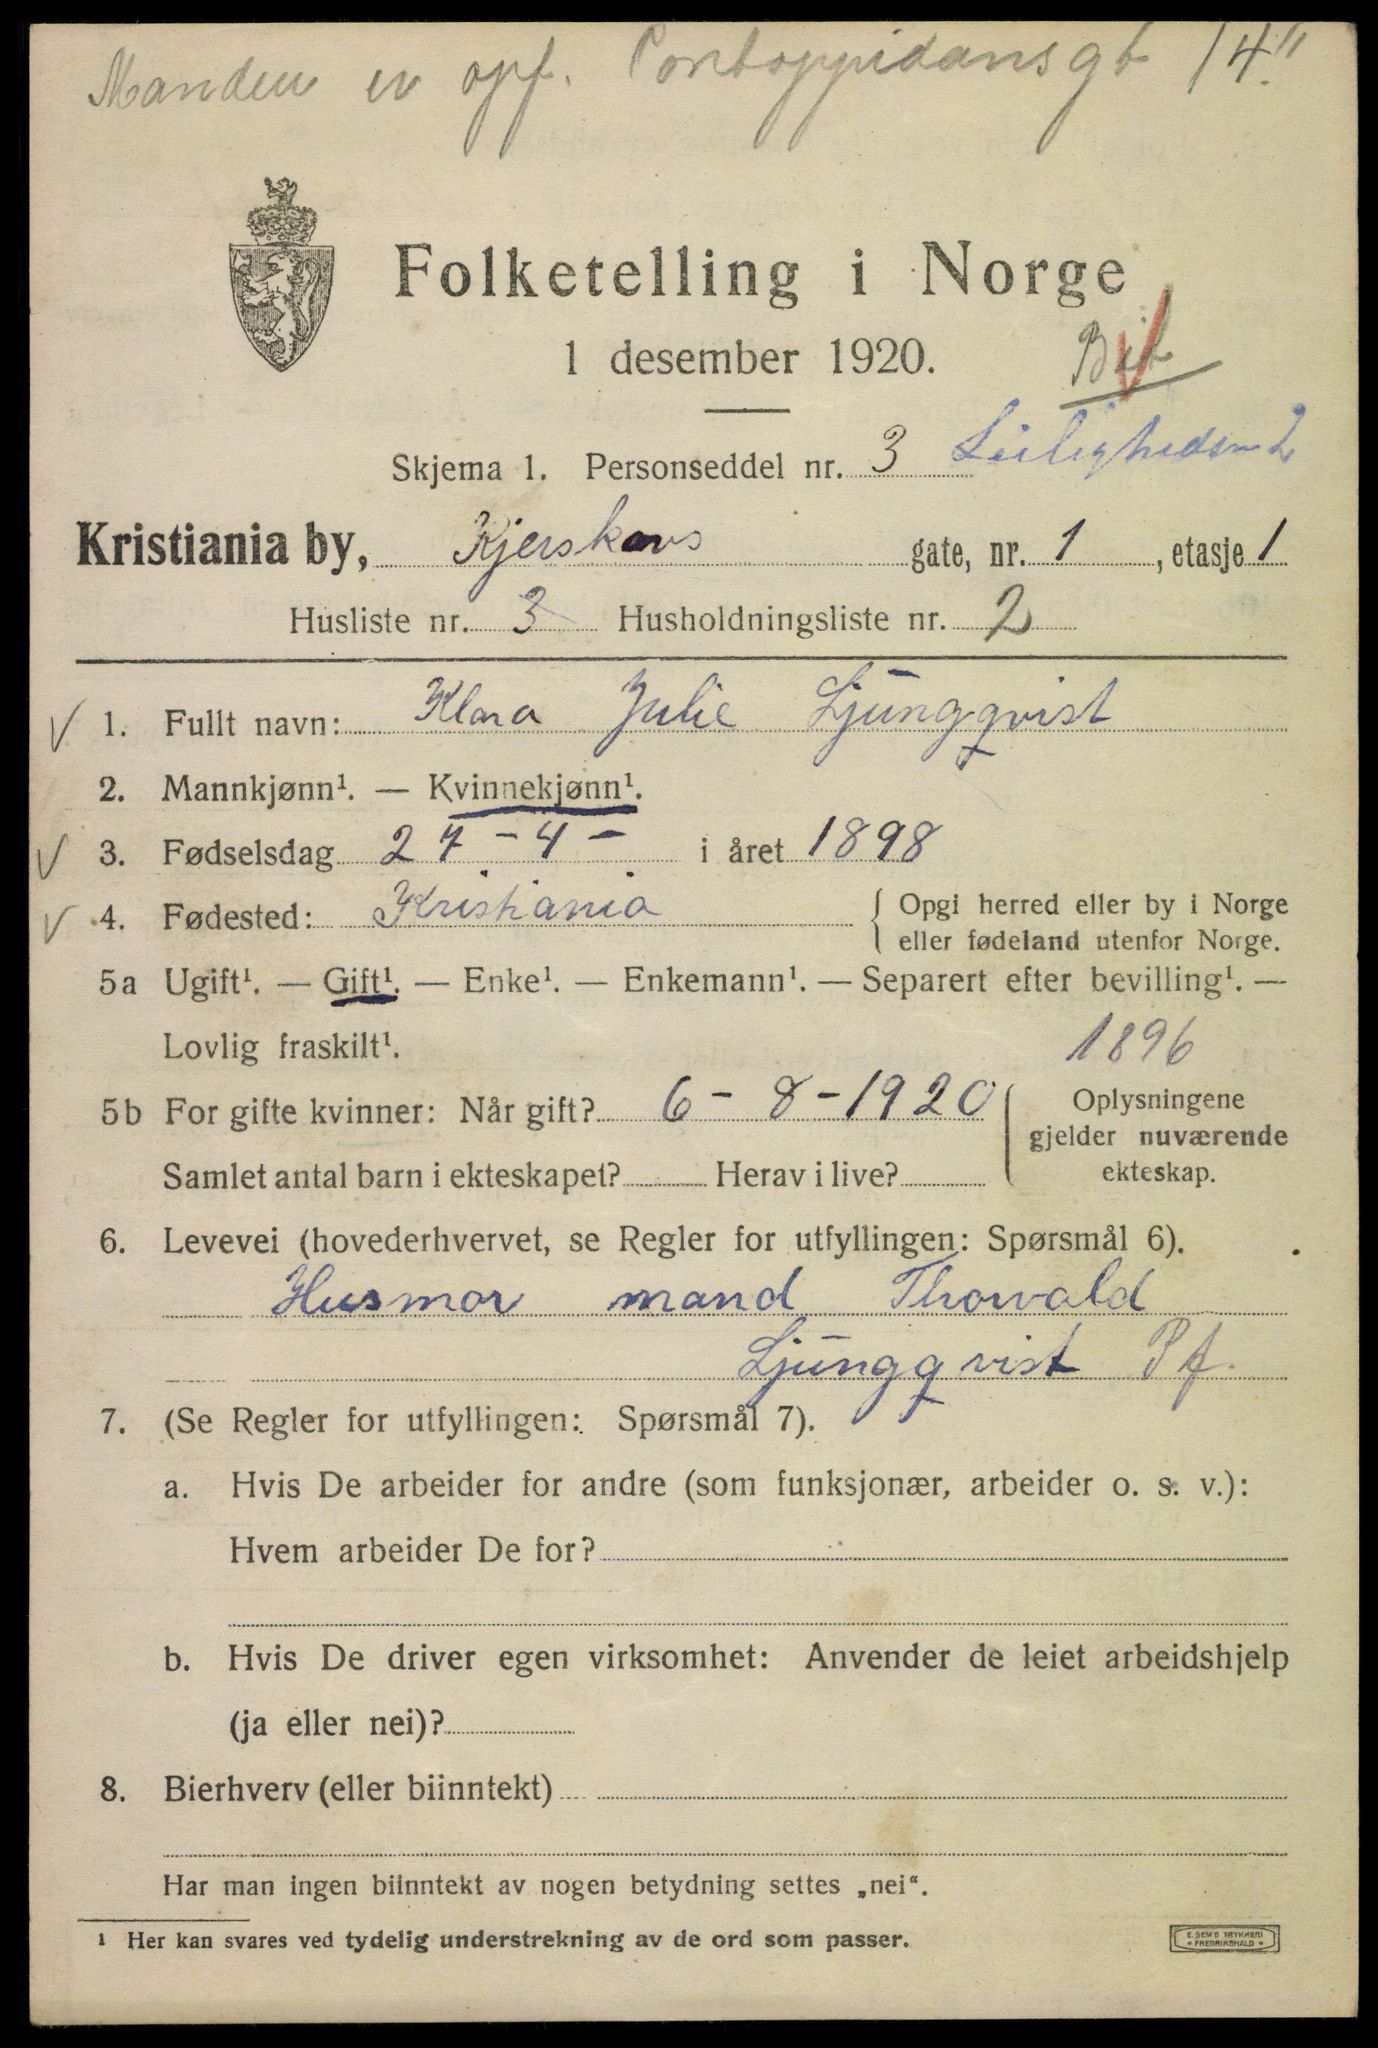 Manden er opf. Pontoppidansgt 14"
Folketelling i Norge
1 desember 1920.
Skjema 1. Personseddel nr. 3 Leiligheden 2
Kristiania by, Kjerskovs gate, nr. 1, etasje 1
Husliste nr. 3 Husholdningsliste nr. 2
1. Fullt navn: Klara Julie Ljungqvist
2. Mannkjønn¹. — Kvinnekjønn¹.
3. Fødselsdag 27 - 4 - i året 1898
4. Fødested: Kristiania { Opgi herred eller by i Norge
eller fødeland utenfor Norge.
5a Ugift¹. — Gift¹. — Enke¹. — Enkemann¹. — Separert efter bevilling¹. —
Lovlig fraskilt¹.
1896
5b For gifte kvinner: Når gift? 6 - 8 - 1920
Samlet antal barn i ekteskapet? Herav i live?
Oplysningene
gjelder nuværende
ekteskap.
6. Levevei (hovederhvervet, se Regler for utfyllingen: Spørsmål 6).
Husmor mand Thorvald
Ljungqvist Pf.
7. (Se Regler for utfyllingen: Spørsmål 7).
a. Hvis De arbeider for andre (som funksjonær, arbeider o. s. v.):
Hvem arbeider De for?
b. Hvis De driver egen virksomhet: Anvender de leiet arbeidshjelp
(ja eller nei)?
8. Bierhverv (eller biinntekt)
Har man ingen biinntekt av nogen betydning settes „nei“.
¹ Her kan svares ved tydelig understrekning av de ord som passer.
E. SEM'S TRYKKERI
• FREDRIKSHALD •